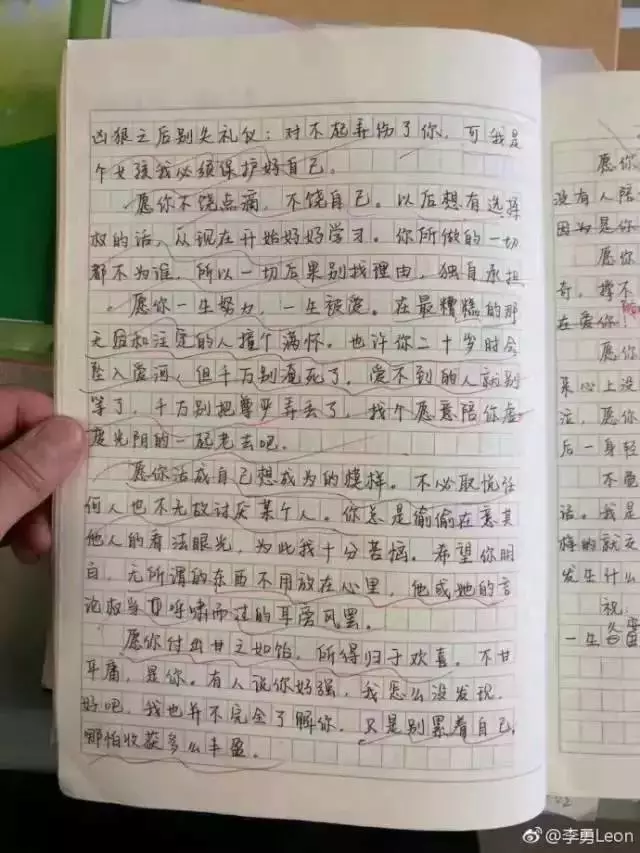 凶狠之后别失礼仪：对不起弄伤了你，可我是
个女孩我必须保护好自己。
愿你不饶点病，不饶自己。以后想有选择
权的话，从现在开始好好学习。你所做的一切
都不为谁，所以一切后果别找理由，独自承担
愿你一生努力，一生被爱。在最糟糕的那
天命和注定的人撞个满怀。也许你二十岁时会
坠入爱河，但千万别淹死了，爱不到的人就别
等了，千万别把尊严弄丢了，找个愿意陪你虚
度光阴的一起老去吧。
愿你活成自己想成为的模样。不必取悦任
何人也不无故讨厌某个人。你总是偷偷在意其
他人的看法眼光，为此我十分苦恼。希望你明
白，无所谓的东西不用放在心里，他或她的言
论权当呼啸而过的耳旁风罢。
愿你付出甘之如饴，所得归于欢喜。不甘
平庸，是你。有人说你好强，我怎么没发现，
好吧，我也并不完全了解你，只是别累着自己，
哪怕收获多么丰盈。
愿你
没有人陪
因为是你
愿你
奇，撑不
在爱你！
愿你
来心上没
泣，愿你
后一身轻
不
话。我是
悔的就交
发生什么
祝：
一生
@李勇Leon